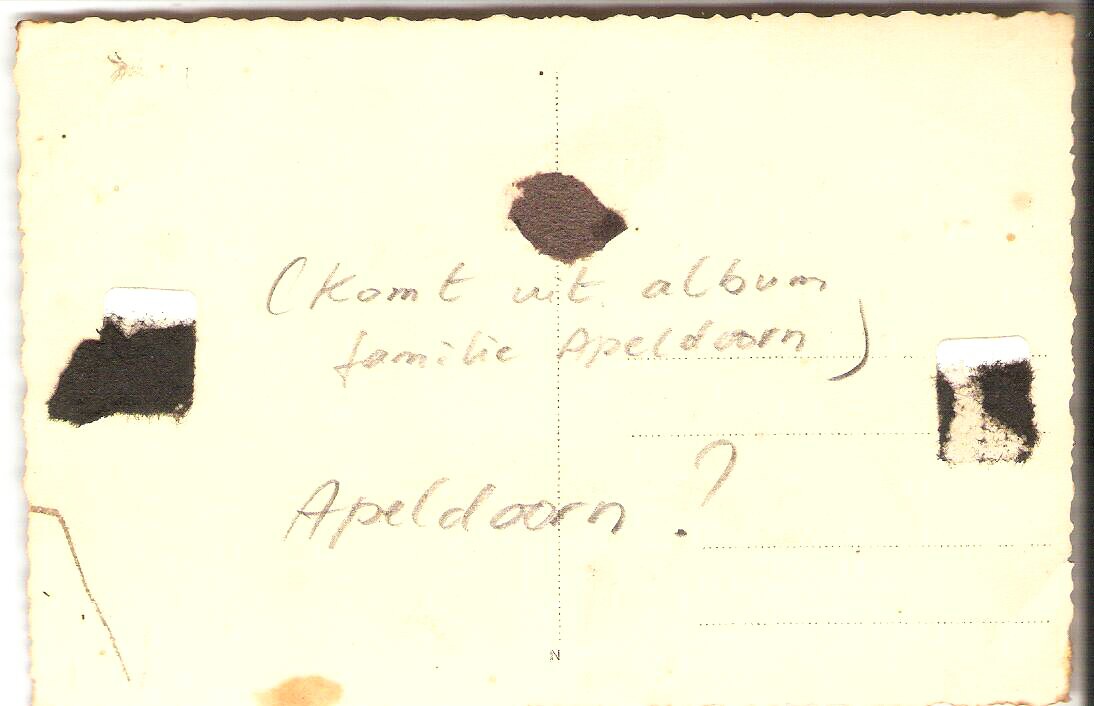 (Komt uit album
familie Apeldoorn)
Apeldoorn?
N